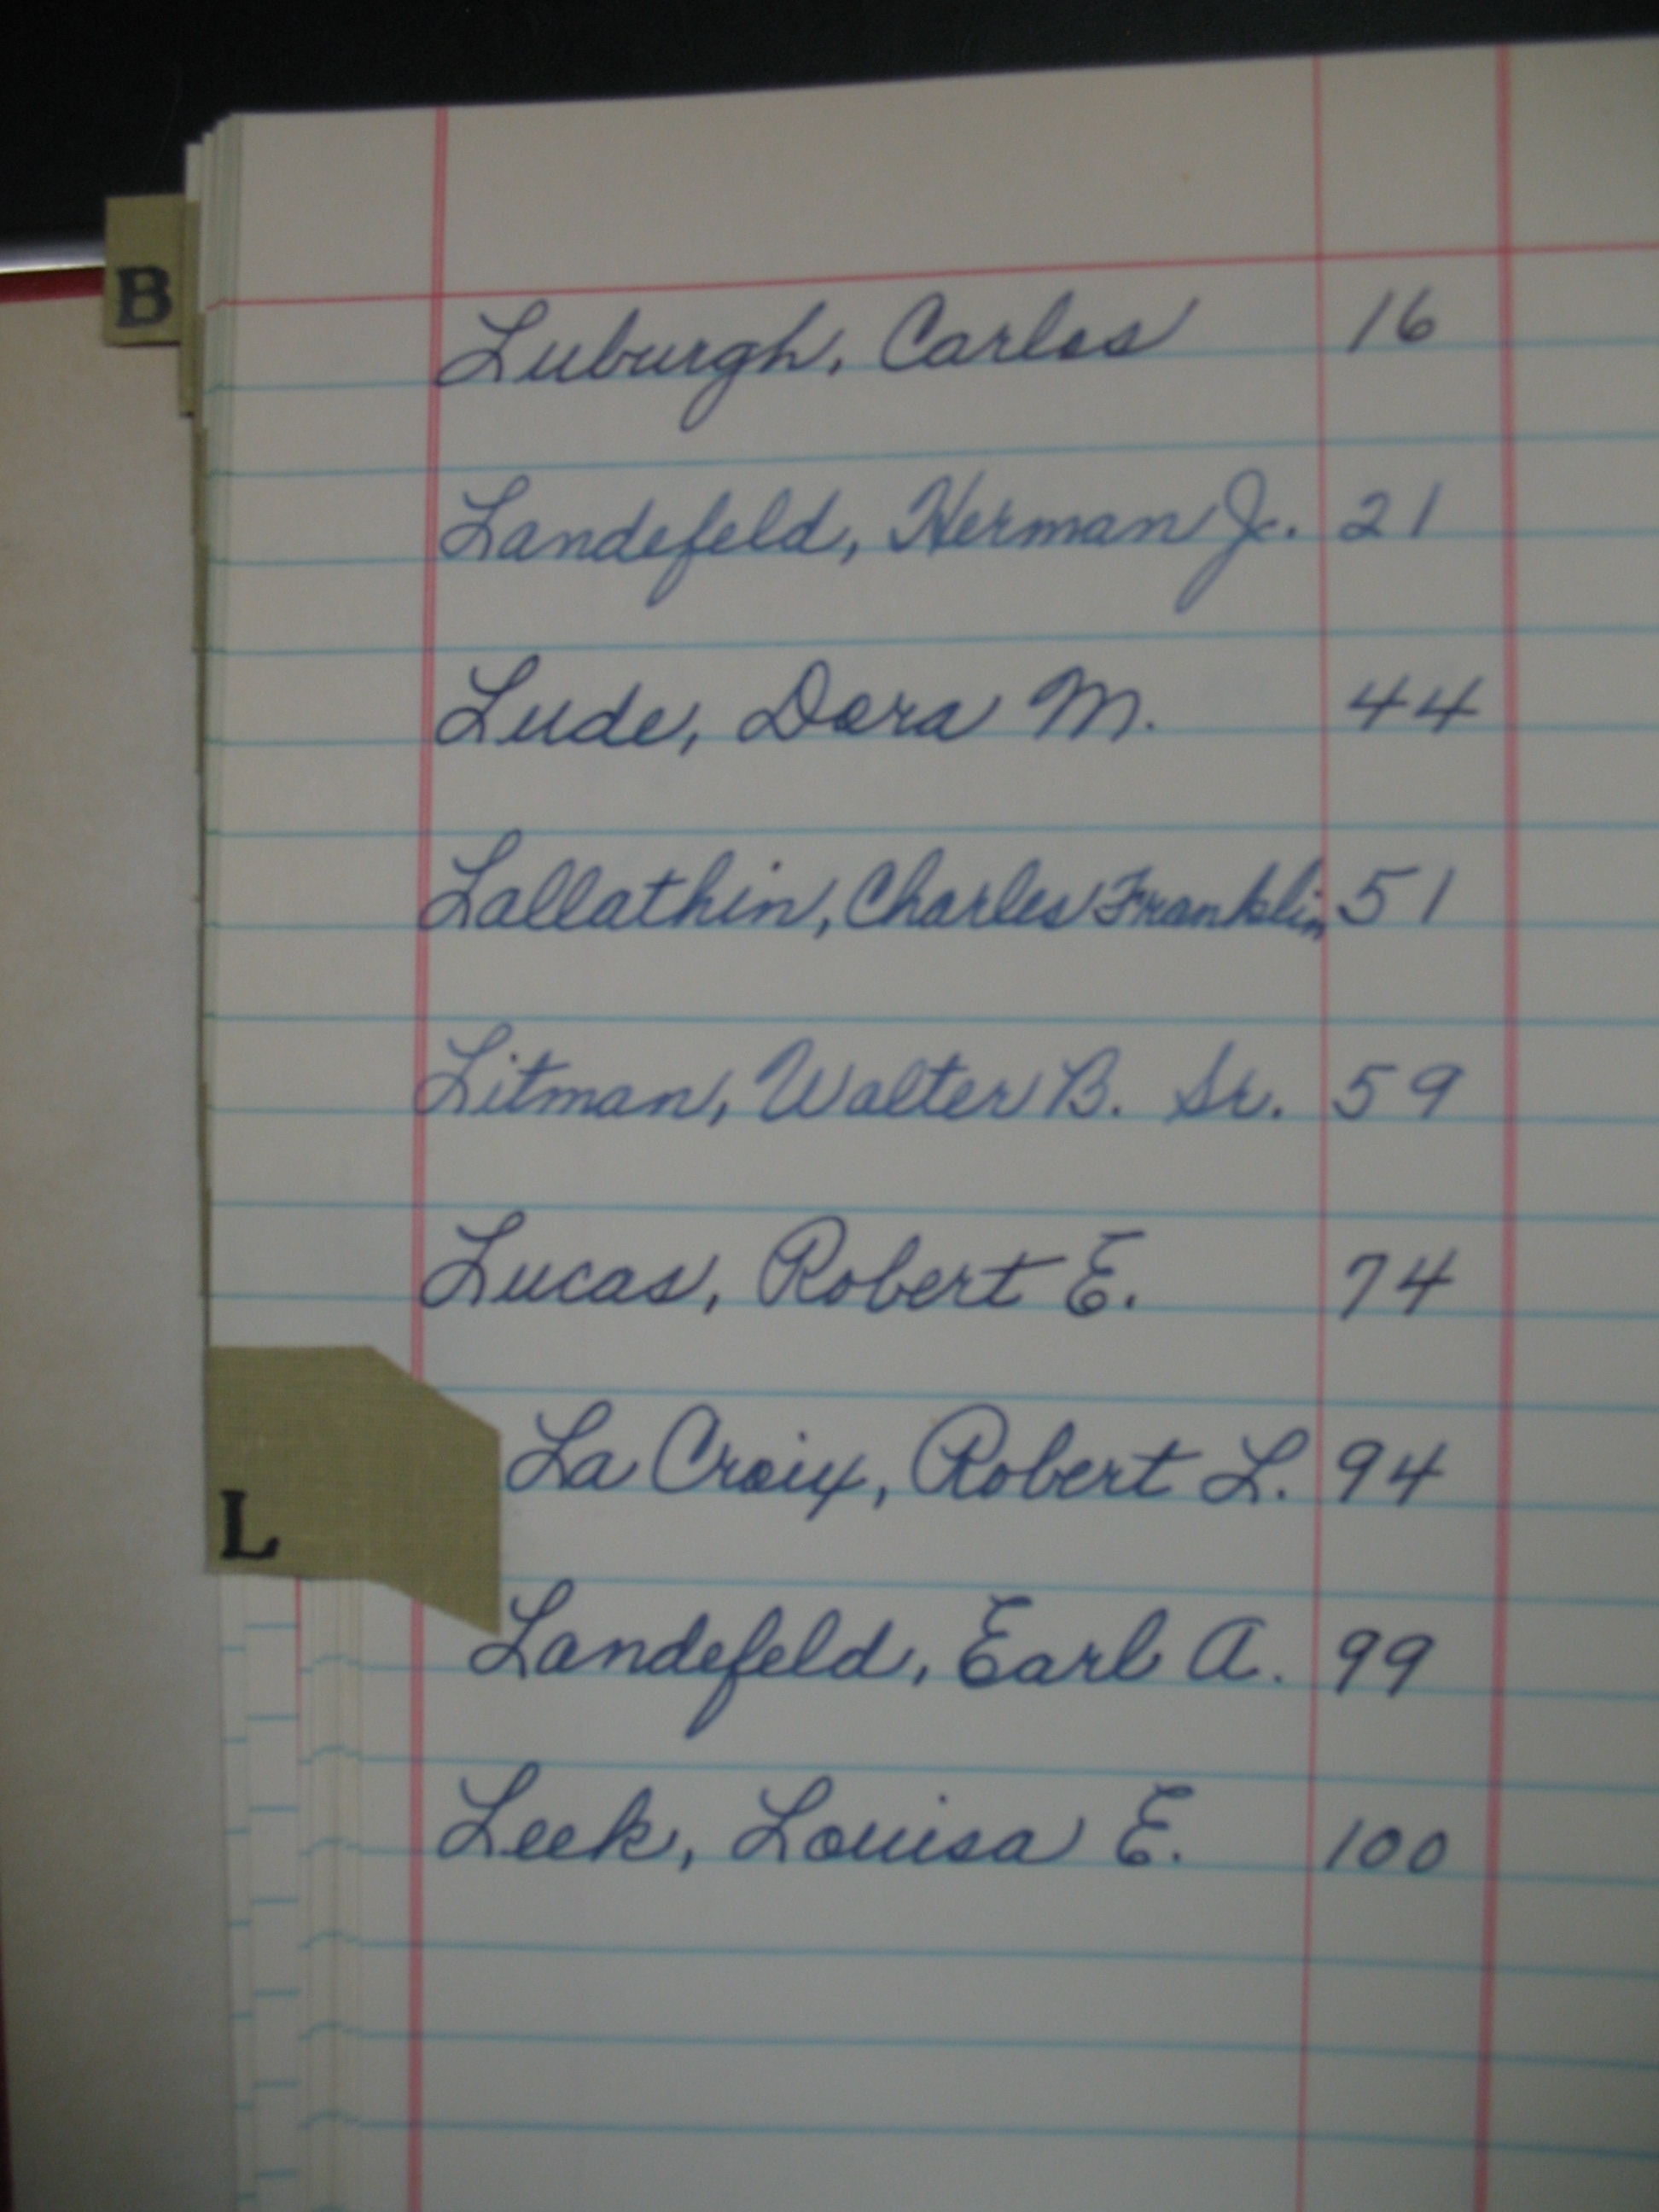 B
Luburgh, Carlos 16
Landefeld, Herman Jr. 21
Lude, Dora M. 44
Lallathin, Charles Franklin 51
Litman, Walter B. Sr. 59
Lucas, Robert E. 74
La Croix, Robert L. 94
L
Landefeld, Earl A. 99
Leek, Louisa E. 100